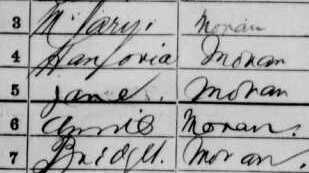 3 Mary Moran
4 Hanforia Moran
5 Jane. Moran
6 Annie Moran.
7 Bridget. Moran.